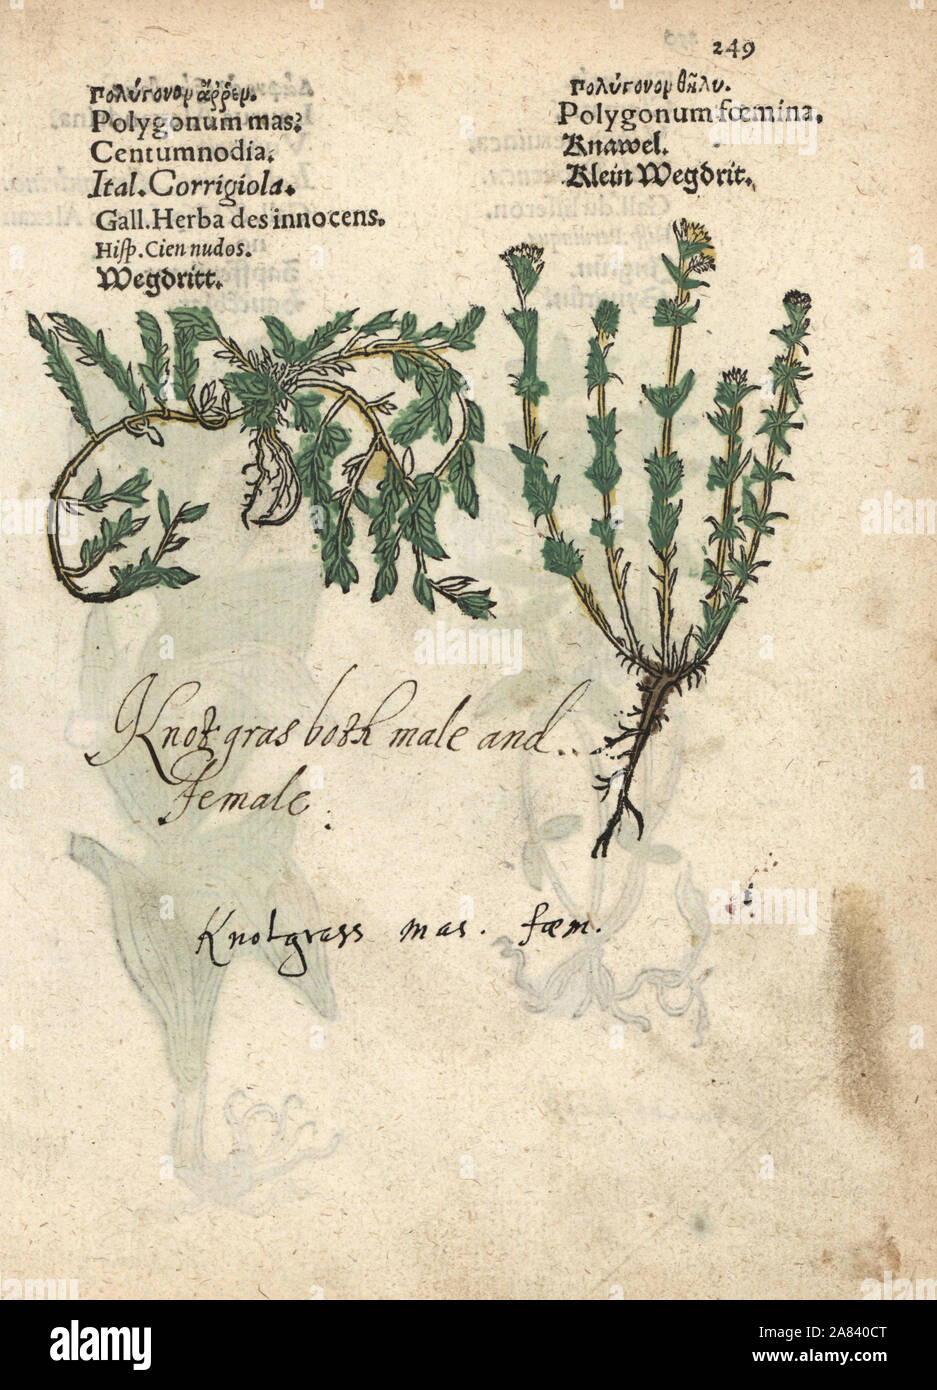 249
Πολύγονον ἄῤῥεν.
Polygonum mas.
Centumnodia.
Ital. Corrigiola.
Gall. Herba des innocens.
Hisp. Cien nudos.
Wegdritt.
Πολύγονον θῆλυ.
Polygonum fœmina.
Knawel.
Klein Wegdrit.
Knotgras both male and
female.
Knotgrass mas. fœm.
alamy
Image ID: 2A840CT
www.alamy.com